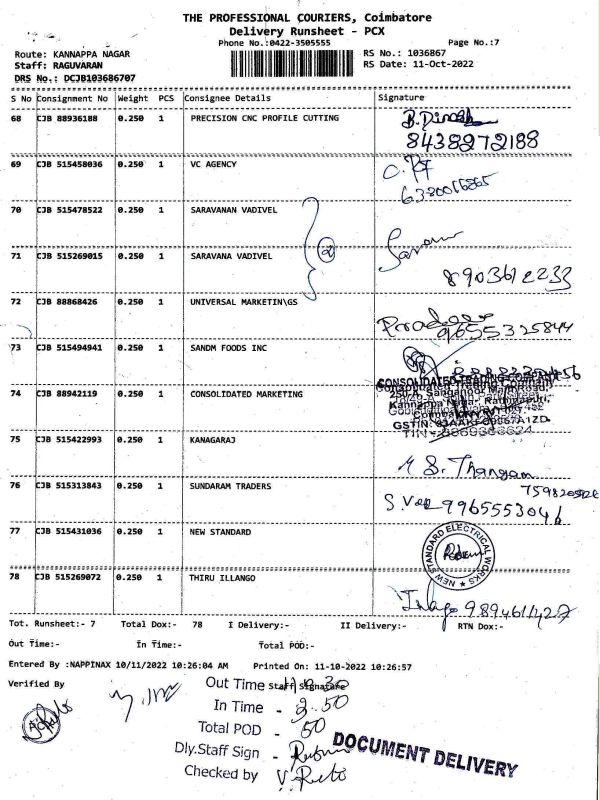 THE PROFESSIONAL COURIERS, Coimbatore
Delivery Runsheet - PCX
Phone No.:0422-3505555 Page No.:7
Route: KANNAPPA NAGAR RS No.: 1036867
Staff: RAGUVARAN RS Date: 11-Oct-2022
DRS No.: DCJB103686707
S No Consignment No Weight PCS Consignee Details Signature
68 CJB 88936188 0.250 1 PRECISION CNC PROFILE CUTTING B.Dinesh
8438272188
69 CJB 515458036 0.250 1 VC AGENCY
6380016865
70 CJB 515478522 0.250 1 SARAVANAN VADIVEL
2 Saran
71 CJB 515269015 0.250 1 SARAVANA VADIVEL
8903612233
72 CJB 88868426 0.250 1 UNIVERSAL MARKETIN\GS
Pradeep
9655325844
73 CJB 515494941 0.250 1 SANDM FOODS INC
CONSOLIDATED TRADING COMPANY
74 CJB 88942119 0.250 1 CONSOLIDATED MARKETING
75 CJB 515422993 0.250 1 KANAGARAJ
M S. Thangam
76 CJB 515313843 0.250 1 SUNDARAM TRADERS
S.V
77 CJB 515431036 0.250 1 NEW STANDARD
NEW STANDARD ELECTRICAL WORKS
78 CJB 515269072 0.250 1 THIRU ILLANGO
9894611427
Tot. Runsheet:- 7 Total Dox:- 78 I Delivery:- II Delivery:- RTN Dox:-
Out Time:- In Time:- Total POD:-
Entered By :NAPPINAX 10/11/2022 10:26:04 AM Printed On: 11-10-2022 10:26:57
Verified By Staff Signature
Out Time
In Time - 2.50
Total POD - 50
Dly.Staff Sign -
Checked by
DOCUMENT DELIVERY